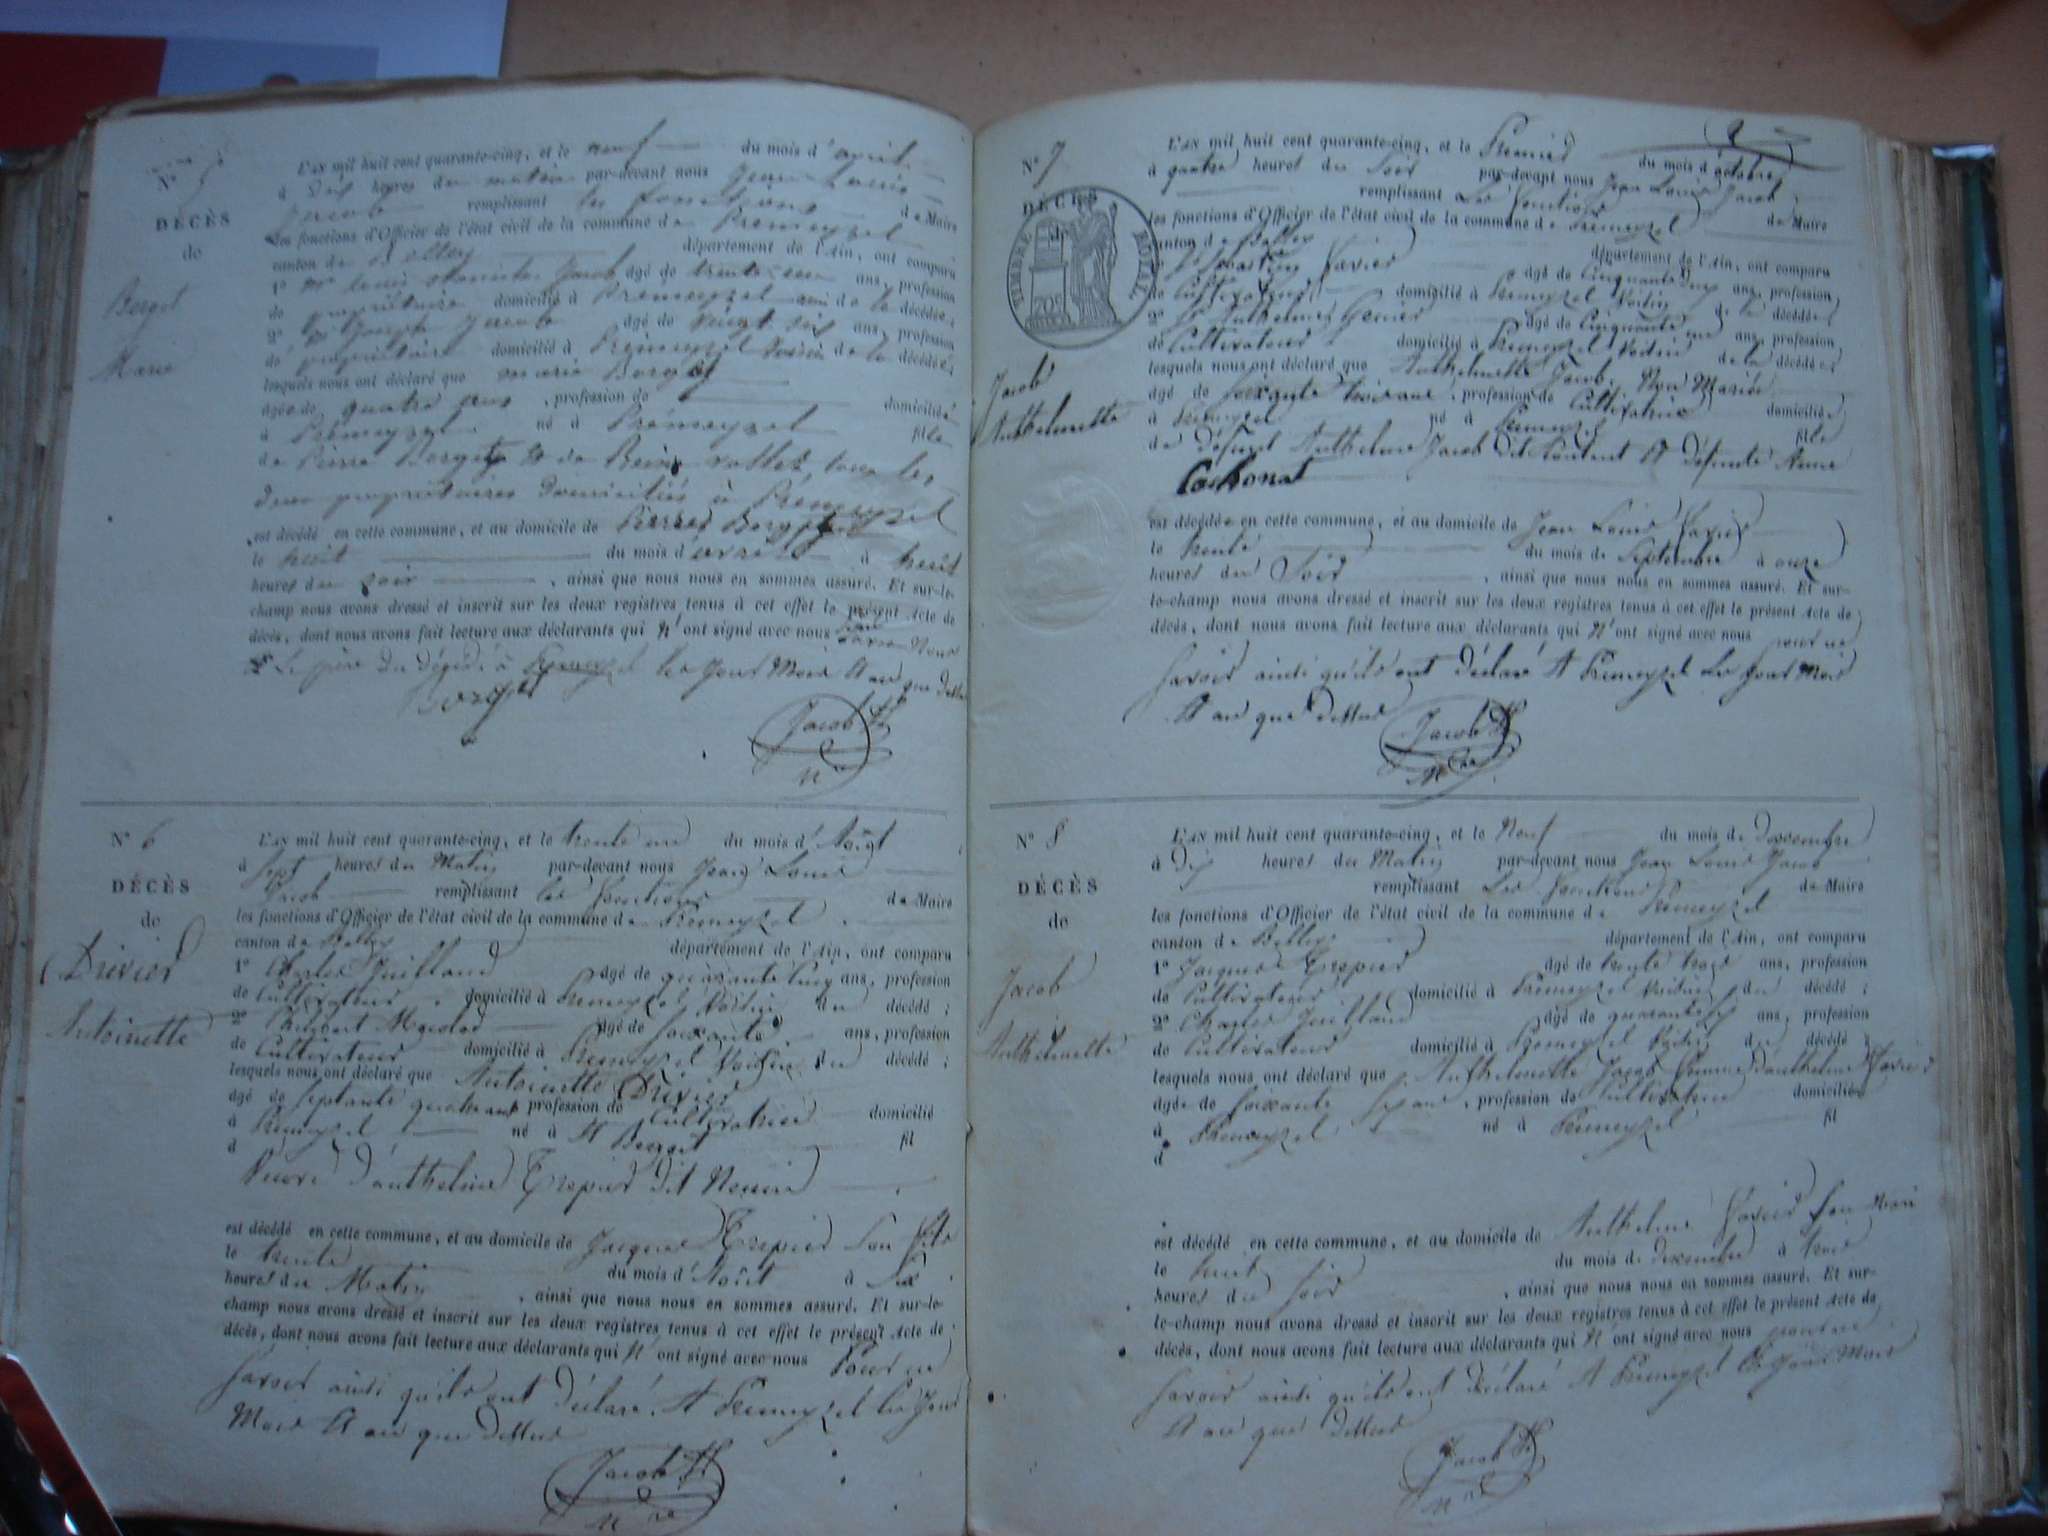 N° 5
DÉCÈS
de
Berget
Marie
L'an mil huit cent quarante-cinq, et le neuf du mois d'avril
à dix heures du matin par-devant nous Jean Louis
Jacob remplissant les fonctions de Maire
les fonctions d'Officier de l'état civil de la commune de Prémeyzel
canton de Belley département de l'Ain, ont comparu
1° Mr Louis Jacob âgé de trente ans, profession
de propriétaire domicilié à Prémeyzel ami de la décédée;
2° Joseph Jacob âgé de vingt six ans, profession
de propriétaire domicilié à Prémeyzel voisin de la décédée;
lesquels nous ont déclaré que marie Berget
âgée de quatre ans, profession de domiciliée
à Prémeyzel né à Prémeyzel fille
de Pierre Berget & de Reine tous les
deux propriétaires domiciliés à Prémeyzel
est décédé en cette commune, et au domicile de Pierre Berget
le huit du mois d'avril à huit
heures du soir, ainsi que nous nous en sommes assuré. Et sur-le-
champ nous avons dressé et inscrit sur les deux registres tenus à cet effet le présent Acte de
décès, dont nous avons fait lecture aux déclarants qui n'ont signé avec nous
Le père du décédé à Premeyzel les Jour Mois & an que dessus
Berget
Jacob
N° 6
DÉCÈS
de
Drivier
Antoinette
L'an mil huit cent quarante-cinq, et le trente un du mois d'Août
à Sept heures du Matin par-devant nous Jean Louis
Jacob remplissant les fonctions de Maire
les fonctions d'Officier de l'état civil de la commune de Premeyzel
canton de Belley département de l'Ain, ont comparu
1° Charles Juilland âgé de quarante Cinq ans, profession
de Cultivateur, domicilié à Premeyzel Voisin du décédé;
2° Philibert âgé de soixante ans, profession
de Cultivateur domicilié à Premeyzel Voisin du décédé;
lesquels nous ont déclaré que Antoinette Drivier
âgé de septante quatre ans profession de Cultivatrice domicilié
à Premeyzel né à St Benoit fil
d
Veuve d'anthelme Trepier dit
est décédé en cette commune, et au domicile de Jacques Trepier Son fils
le trente du mois d'Août à Six
heures du Matin, ainsi que nous nous en sommes assuré. Et sur-le-
champ nous avons dressé et inscrit sur les deux registres tenus à cet effet le présent Acte de
décès, dont nous avons fait lecture aux déclarants qui N'ont signé avec nous Pour ne
Savoir ainsi qu'ils ont déclaré. A Premeyzel les Jour
Mois & an que dessus
Jacob
N° 7
DÉCÈS
TIMBRE ROYAL
Jacob
Anthelmette
L'an mil huit cent quarante-cinq, et le Premier du mois d'octobre
à quatre heures du Soir par-devant nous Jean Louis Jacob
remplissant les fonctions de Maire
les fonctions d'Officier de l'état civil de la commune de Premeyzel
canton de Belley département de l'Ain, ont comparu
Savier âgé de Cinquante ans, profession
de Cultivateur domicilié à Premeyzel Voisin de la décédée;
2° Sr Anthelme âgé de Cinquante ans, profession
de Cultivateur domicilié à Premeyzel Voisin de la décédée;
lesquels nous ont déclaré que Anthelmette Jacob, Non Mariée
âgé de Soixante trois ans, profession de Cultivatrice domiciliée
à Premeyzel né à Premeyzel fille
de défunt Anthelme Jacob dit & défunte Anne
Cochonat
est décédée en cette commune, et au domicile de Jean Louis Savier
le trente du mois de Septembre à onze
heures du Soir, ainsi que nous nous en sommes assuré. Et sur-
le-champ nous avons dressé et inscrit sur les deux registres tenus à cet effet le présent Acte de
décès, dont nous avons fait lecture aux déclarants qui N'ont signé avec nous pour ne
Savoir ainsi qu'ils ont déclaré A Premeyzel les Jour Mois
& an que dessus
Jacob
N° 8
DÉCÈS
de
Jacob
Anthelmette
L'an mil huit cent quarante-cinq, et le Neuf du mois de Decembre
à Dix heures du Matin par-devant nous Jean Louis Jacob
remplissant les fonctions de Maire
les fonctions d'Officier de l'état civil de la commune de Premeyzel
canton de Belley département de l'Ain, ont comparu
1° Jacques Trepier âgé de trente trois ans, profession
de Cultivateur domicilié à Premeyzel Voisin du décédé;
2° Charles Juilland âgé de quarante ans, profession
de Cultivateur domicilié à Premeyzel Voisin du décédé;
lesquels nous ont déclaré que Anthelmette Jacob femme d'anthelme Savier
âgée de soixante ans, profession de Cultivateur domiciliée
à Premeyzel né à Premeyzel fil
d
est décédé en cette commune, et au domicile de Anthelme Savier Son Mari
le huit du mois de decembre à trois
heures du soir, ainsi que nous nous en sommes assuré. Et sur-
le-champ nous avons dressé et inscrit sur les deux registres tenus à cet effet le présent Acte de
décès, dont nous avons fait lecture aux déclarants qui N'ont signé avec nous pour ne
Savoir ainsi qu'ils ont déclaré A Premeyzel les Jour Mois
& an que dessus
Jacob